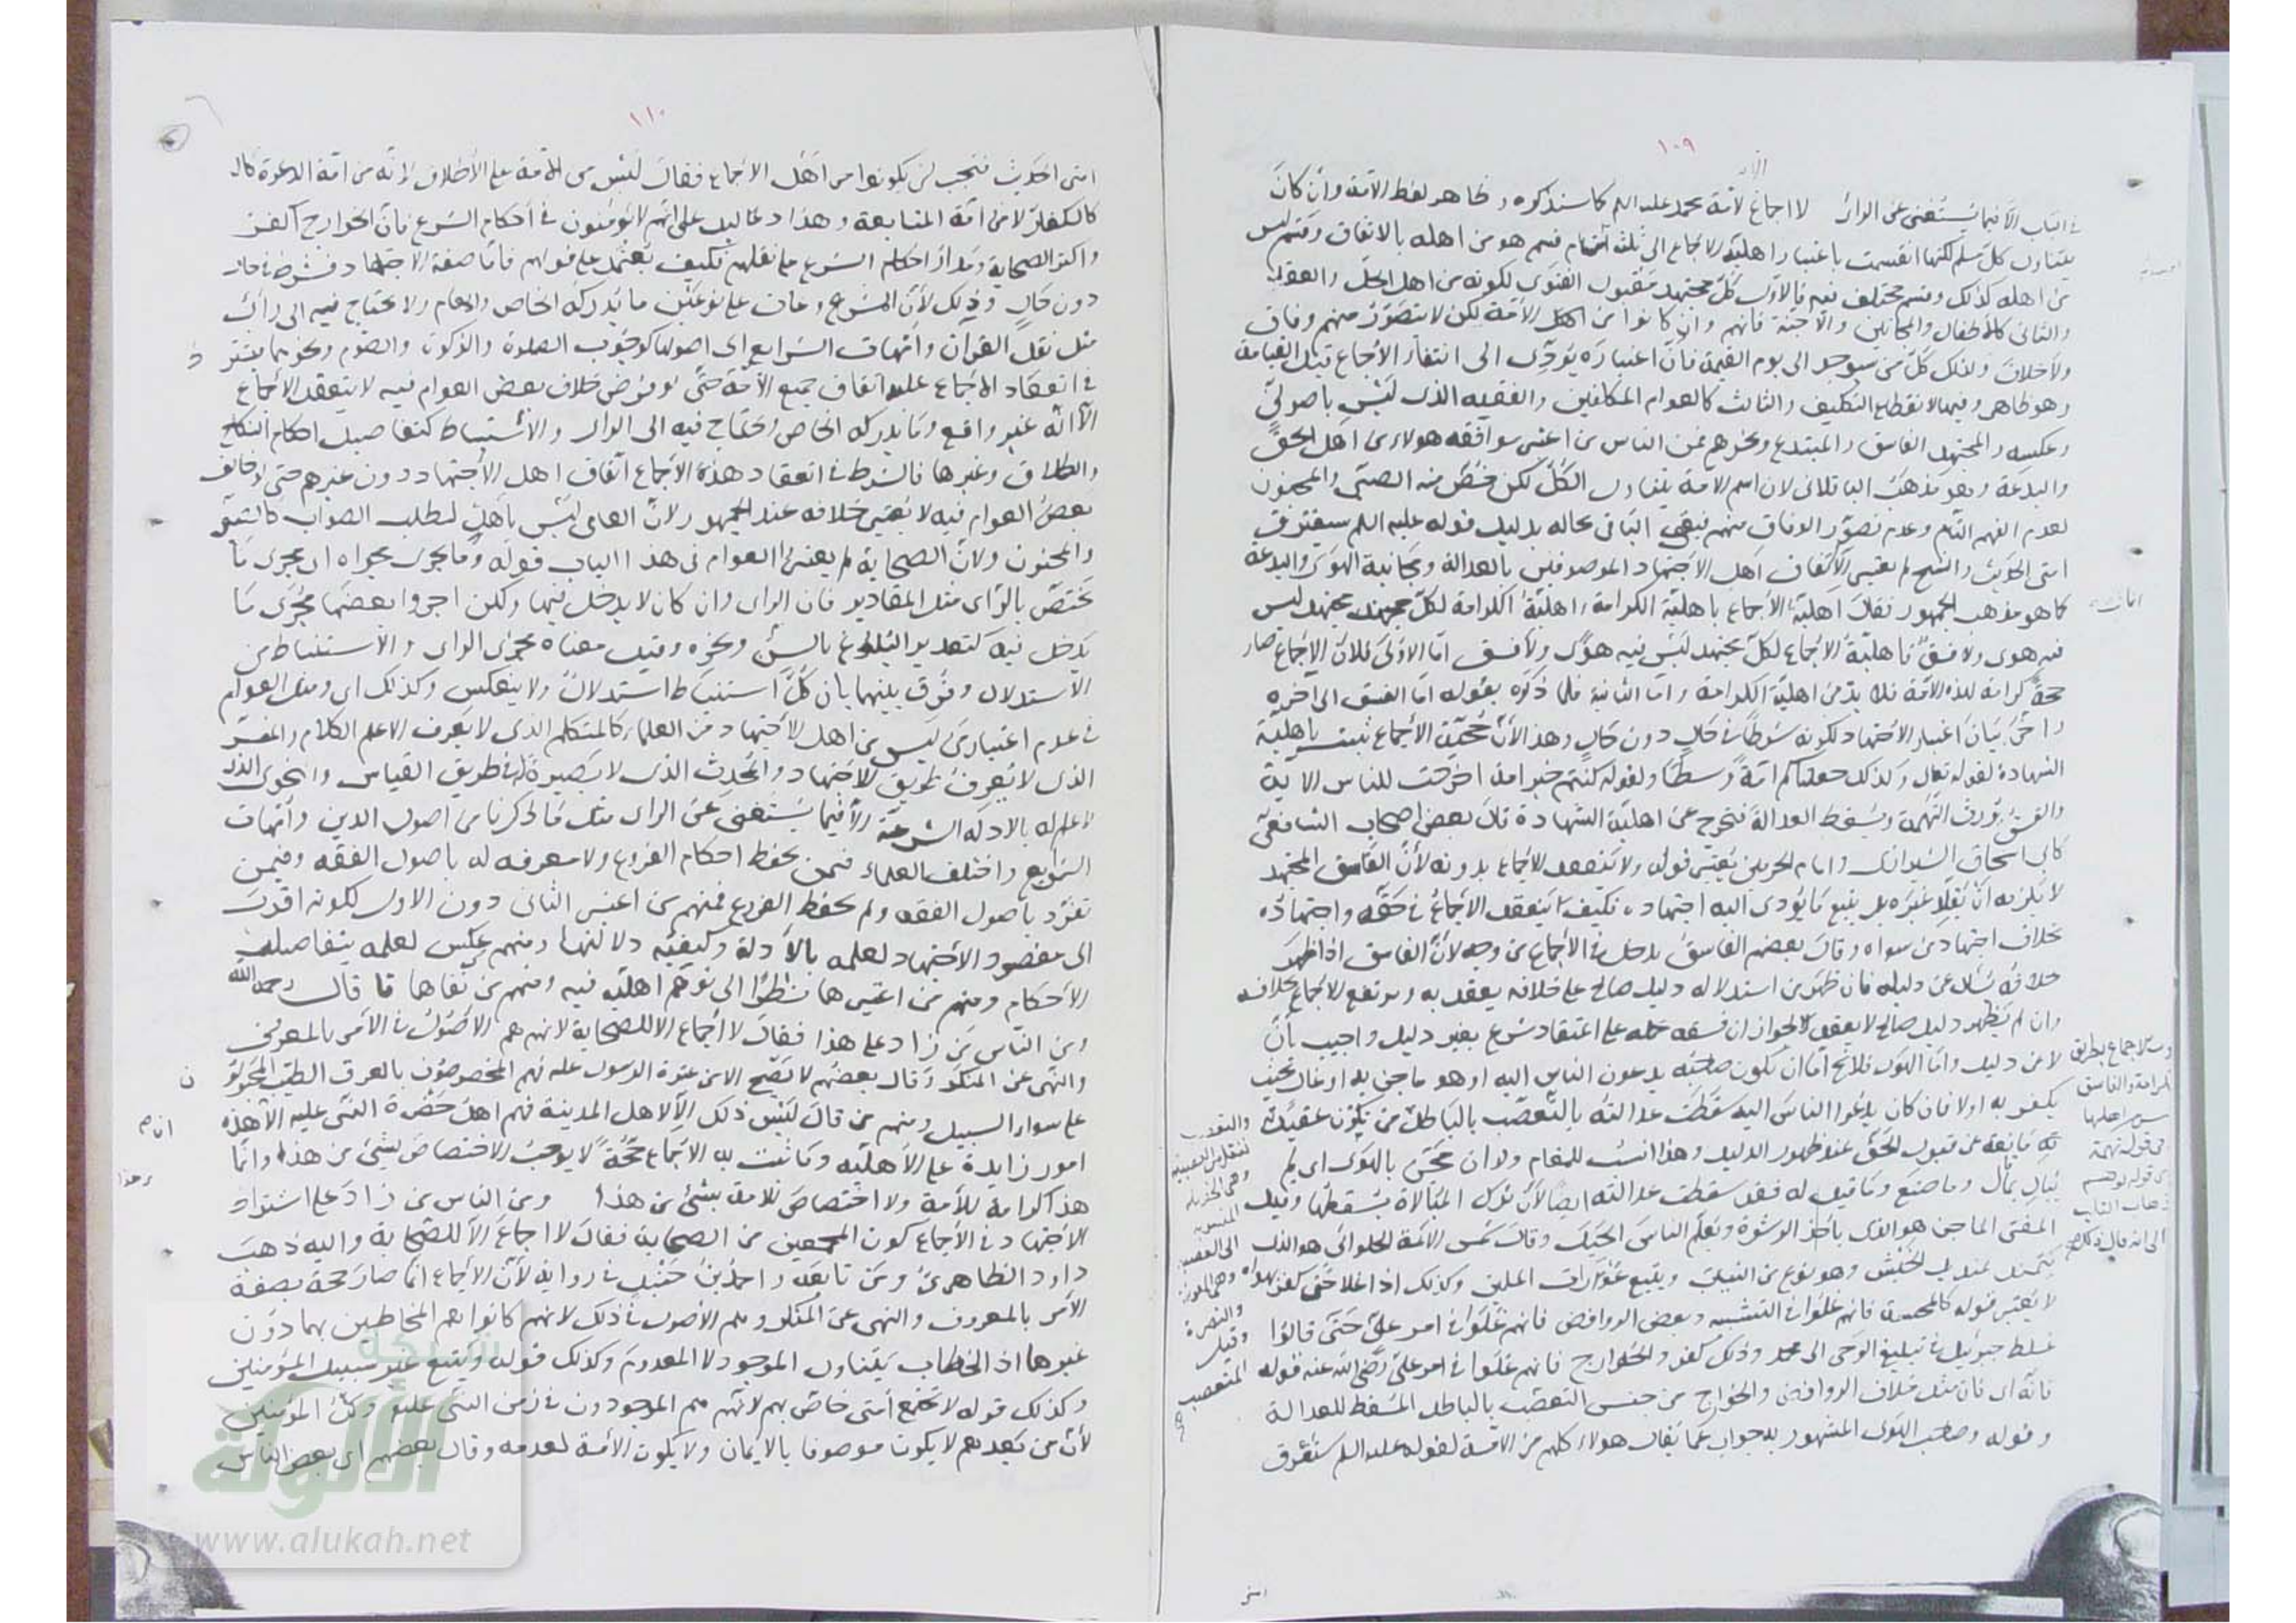 ١٠٩
في الباب الا فيما يستغنى عن الراي لا اجماع لامة محمد عليه السلم كما سنذكره وظاهر لفظ الامة وان كان
يتناول كل مسلم لكنها انقسمت باعتبار اهلية الاجماع الى ثلث اقسام قسم هو من اهله بالاتفاق وقسم ليس
من اهله كذلك وقسم مختلف فيه فالاول كل مجتهد مقبول الفتوى لكونه من اهل الحل والعقد
والثاني كالاطفال والمجانين والاجنة فانهم وان كانوا من اهل الامة لكن لا يتصور منهم وفاق
ولا خلاف وكذلك كل من سيوجد الى يوم القيمة فان اعتباره يؤدي الى انتفاء الاجماع قبل القيامة
وهو ظاهر وفيها لانقطاع التكليف والثالث كالعوام المكلفين والفقيه الذي ليس باصولي
وعكسه والمجتهد الفاسق والمبتدع ونحوهم فمن الناس من اعتبر موافقة هولاء من اهل الحق
والبدعة وهو مذهب الباقلاني لان اسم الامة يتناول الكل لكن خص منه الصبي والمجنون
لعدم الفهم التام وعدم تصور الوفاق منهم فبقي الباقي بحاله بدليل قوله عليه السلم ستفترق
امتي الحديث والشيخ لم يعتبر الا اتفاق اهل الاجتهاد الموصوفين بالعدالة ومجانبة الهوى والبدعة
كما هو مذهب الجمهور فقال اهلية الاجماع باهلية الكرامة اهلية الكرامة لكل مجتهد ليس
فيه هوى ولا فسق فاهلية الاجماع لكل مجتهد ليس فيه هوى ولا فسق اما الاولى فلان الاجماع صار
حجة كرامة لهذه الامة فلا بد من اهلية الكرامة واما الثانية فلما ذكره بقوله اما الفسق الى اخره
واخر بيان اعتبار الاجتهاد لكونه شرطا في حال دون حال وهذا لان حجية الاجماع ثبتت باهلية
الشهادة لقوله تعالى وكذلك جعلناكم امة وسطا ولقوله كنتم خير امة اخرجت للناس الاية
والفسق يورث التهمة ويسقط العدالة فتخرج عن اهلية الشهادة قال بعض اصحاب الشافعي
كابي اسحاق الشيرازي وامام الحرمين يعتبر قوله ولا ينعقد الاجماع بدونه لان الفاسق المجتهد
لا يلزمه ان يقلد غيره بل يتبع ما يؤدي اليه اجتهاده فكيف ينعقد الاجماع في حقه واجتهاده
بخلاف اجتهاد من سواه وقال بعضهم الفاسق يدخل في الاجماع من وجه لان الفاسق اذا اظهر
خلافه سئل عن دليله فان ظهر من استدلاله دليل صالح على خلافه يعتد به ويرتفع الاجماع بخلافه
وان لم يظهر دليل صالح لا يعتد به لجواز ان فسقه حمله على اعتقاد شرع بغير دليل واجيب بان
لا عن دليل واما الهوى فلا يخ اما ان يكون صاحبه يدعون الناس اليه او هو ماجن به او غال بحيث
يكفر به اولا فان كان يدعوا الناس اليه سقطت عدالته بالتعصب بالباطل من تكون عقيدته
مانعة عن قبول الحق عند ظهور الدليل وهذا انسب للمقام ولو ان مجن بالهوى اي لم
يبال بما قال وما صنع وما قيل له فقد سقطت عدالته ايضا لان ترك المبالاة يسقطها وقيل
المفتي الماجن هو الذي ياخذ الرشوة ويعلم الناس الحيل وقال شمس الائمة الحلوائي هو الذي
ويتبع عورات المسلمين وكذلك اذا غلا حتى كفر بهواه
لا يعتبر قوله كالمجسمة فانهم غلوا في التشبيه وبعض الروافض فانهم غلوا في امر علي حتى قالوا
غلط جبرئيل في تبليغ الوحي الى محمد وذلك كفر والخوارج فانهم غلوا في امر علي رضي الله عنه قوله
فانه اي فان مثل خلاف الروافض والخوارج من جنس التعصب بالباطل المسقط للعدالة
وقوله وصاحب الهوى المشهور به جواب عما يقال هولاء كلهم من الامة لقوله عليه السلم ستفترق
١١٠
امتي الحديث فيجب ان يكونوا من اهل الاجماع فقال ليس من الامة على الاطلاق لانه من امة الدعوة كالـ
كالكفار لا من امة المتابعة وهذا دليل على انهم لا يؤتمنون في احكام الشرع فان الخوارج اكفر
واكثر الصحابة ومدار احكام الشرع على نقلهم فكيف يعتمد على قولهم فاما صفة الاجتهاد فشرط في حال
دون حال وذلك لان الشرع وحات على نوعين ما يدركه الخاص والعام ولا يحتاج فيه الى راي
مثل نقل القران وامهات الشرايع اي اصولها كوجوب الصلوة والزكوة والصوم ونحوها يشتر
في انعقاد الاجماع عليه اتفاق جميع الامة حتى لو فرض خلاف بعض العوام فيه لا ينعقد الاجماع
الا انه غير واقع وما يدركه الخاص ويحتاج فيه الى الراي والاستنباط كتفاصيل احكام النكاح
والطلاق وغيرها فالشرط في انعقاد هذه الاجماع اتفاق اهل الاجتهاد دون غيرهم حتى لو خالف
بعض العوام فيه لا يعتبر خلافه عند الجمهور لان العامي ليس باهل لطلب الصواب كالصبي
والمجنون ولان الصحابة لم يعتبروا العوام في هذا الباب قوله وما يجري مجراه اي مجرى ما
يختص بالراي مثل المقادير فان الراي وان كان لا يدخل فيها ولكن اجروا بعضها مجرى ما
يدخل فيه كتقدير البلوغ بالسن ونحوه وقيل معناه مجرى الراي والاستنباط من
الاستدلال وفرق بينهما بان كل استنباط استدلال ولا ينعكس وكذلك اي ومثل العوام
في عدم اعتبار من ليس من اهل الاجتهاد من العلماء كالمتكلم الذي لا يعرف الا علم الكلام والمفسر
الذي لا يعرف طريق الاجتهاد والمحدث الذي لا بصيرة له في طريق القياس والنحوي الذي
لا علم له بالادلة الشرعية الا فيما يستغنى عن الراي مثل ما ذكرنا من اصول الدين وامهات
الشرايع واختلف العلماء فيمن يحفظ احكام الفروع ولا معرفة له باصول الفقه وفيمن
تفرد باصول الفقه ولم يحفظ الفروع فمنهم من اعتبر الثاني دون الاول لكونه اقرب
الى مقصود الاجتهاد لعلمه بالادلة وكيفية دلالتها ومنهم من عكس لعلمه بتفاصيل
الاحكام ومنهم من اعتبرها نظرا الى توهم اهلية فيه ومنهم من نفاها قا قال رحمه الله
ومن الناس من زاد على هذا فقال لا اجماع الا للصحابة لانهم هم الاصول في الامر بالمعروف
والنهي عن المنكر وقال بعضهم لا يصح الا من عترة الرسول عليه لانهم المخصوصون بالعرق الطيب المجبول
على سواء السبيل ومنهم من قال ليس ذلك الا لاهل المدينة فهم اهل حضرة النبي عليه الا هذه
امور زايدة على الاهلية وما ثبت به الاجماع حجة لا يوجب الاختصاص بشيء من هذا وانما
هذا كرامة للامة ولا اختصاص للامة بشيء من هذا ومن الناس من زاد على اشتراط
الاجتهاد في الاجماع كون المجمعين من الصحابة فقال لا اجماع الا للصحابة واليه ذهب
داود الظاهري ومن تابعه واحمد بن حنبل في رواية لان الاجماع انما صار حجة بصفة
الامر بالمعروف والنهي عن المنكر وهم الاصول في ذلك لانهم كانوا هم المخاطبين بهما دون
غيرها اذ الخطاب يتناول الموجود لا المعدوم وكذلك قوله ويتبع غير سبيل المؤمنين
وكذلك قوله لا تجتمع امتي خاص بهم لانهم هم الموجودون في زمن النبي عليه وكل المؤمنين
لان من بعدهم لا يكون موصوفا بالايمان ولا يكون الامة لعدمه وقال بعضهم اي بعض الناس
شبكة
الألوكة
www.alukah.net